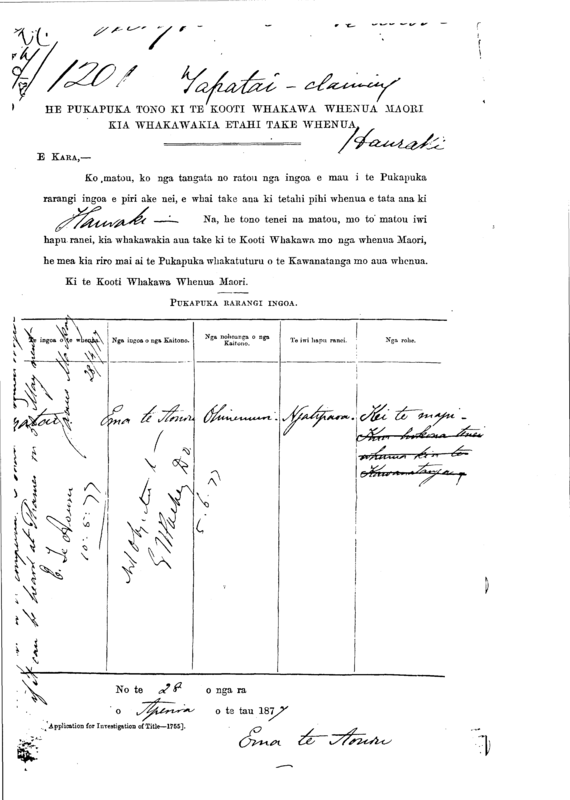 1201 Tapatai - claiming
HE PUKAPUKA TONO KI TE KOOTI WHAKAWA WHENUA MAORI
KIA WHAKAWAKIA ETAHI TAKE WHENUA,
Hauraki
E KARA,—
Ko matou, ko nga tangata no ratou nga ingoa e mau i te Pukapuka
rarangi ingoa e piri ake nei, e whai take ana ki tetahi pihi whenua e tata ana ki
Hauraki — Na, he tono tenei na matou, mo to matou iwi
hapu ranei, kia whakawakia aua take ki te Kooti Whakawa mo nga whenua Maori,
he mea kia riro mai ai te Pukapuka whakatuturu o te Kawanatanga mo aua whenua.
Ki te Kooti Whakawa Whenua Maori.
PUKAPUKA RARANGI INGOA.
Te ingoa o te whenua.
Nga ingoa o nga Kaitono.
Nga nohoanga o nga
Kaitono.
Te iwi hapu ranei.
Nga rohe.
Ema te Aouru
Ohinemuri.
Ngatipaoa.
Kei te mapi -
Kua hokona tenei
whenua kia te
Kawanatanga
James Mackay
28/4/77
if it can be heard at Thames on May next
E. Te Aouru
10.5.77
No Objection
5.6.77
No te 28 o nga ra
o Aperira o te tau 1877
[Application for Investigation of Title—1755].
Ema te Aouru